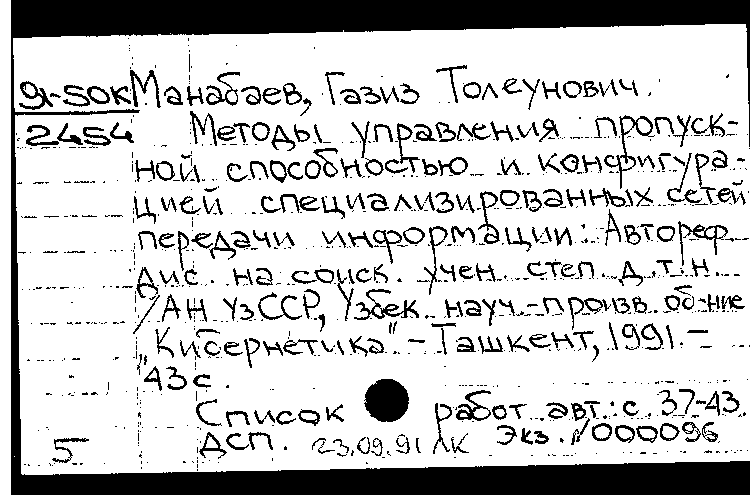 91-50К Манабаев, Газиз Толеунович.
2454 Методы управления пропуск-
ной способностью и конфигура-
цией специализированных сетей
передачи информации: Автореф
дис. на соиск. учен. степ. д.т.н.
/АН УзССР, Узбек. науч.-произв. об-ние
"Кибернетика" - Ташкент, 1991. -
43 с.
Список работ авт.: с. 37-43.
5 ДСП. 23.09.91 ЛК Экз. N 000096